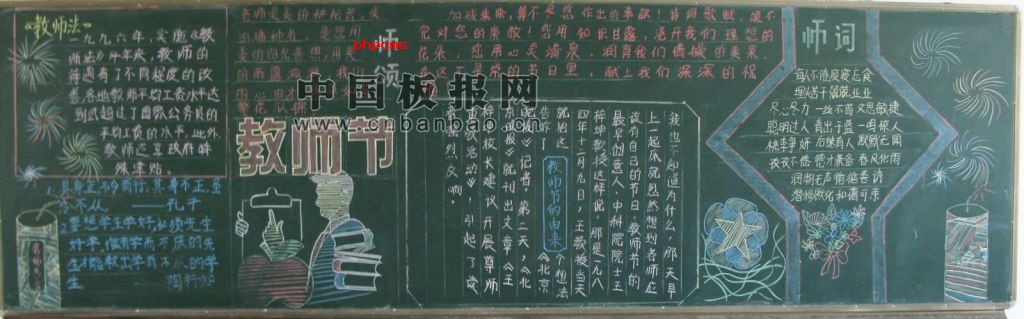 《教师法》
一九九六年，实施《教
师法》
年来，教师的
待遇有了不同程度的改
善，各地教师平均工资水平达
到或超过了国家公务员的
平均工资的水平，此外
教师还享政府特
殊津贴。
1、其身正，不令而行；其身不正，虽
令不从。 ——孔子
2、要想学生学好，必须先生
好学，惟有学而不厌的先
生才能教出学而不厌的学
生 陶行知
师颂
phpcms
中国板报网
www.cnbanbao.cn
教师节
加减乘除，算不尽您作出的奉献！诗词歌赋，颂不
完对您的崇敬！您用知识甘露，浇开我们理想的
花朵，您用心灵清泉，润育我们情操的美果
在这不寻常的节日里，献上我们深深的祝
我也不知道为什么，那天早
上一起床就忽然想到老师应
该有自己的节日。教师节的
最早创意人、中科院院士王
梓坤教授这样说。那是一九八
四年十二月九日，王教授当天
就把这个想法
告诉了《北京
教师节的由来
晚报》记者。第二天，《北
京晚报》就刊出文章《王
梓坤校长建议开展尊师
重教活动》，引起了读
者热烈反响。
师词
诲人不倦废寝忘食
埋头苦干兢兢业业
尽心尽力一丝不苟文思敏捷
聪明过人青出于蓝一鸣惊人
桃李争妍后继有人默默无闻
孜孜不倦德才兼备春风化雨
润物无声循循善诱
潜移默化和蔼可亲